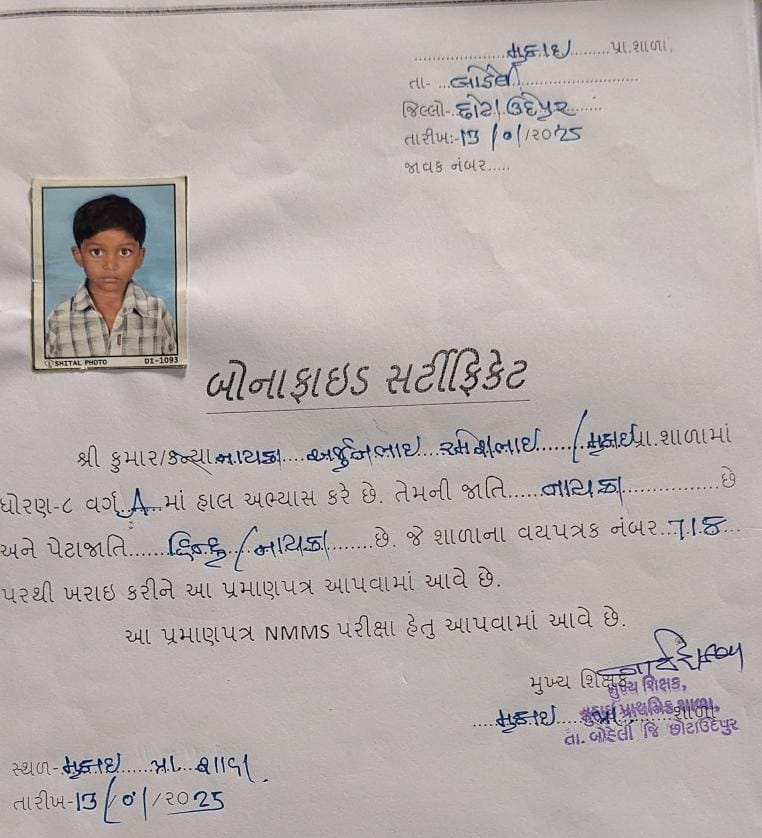 મુકાઈ પ્રા.શાળા,
તા- બોડેલી
જિલ્લો- છોટાઉદેપુર
તારીખ:-13/01/2025
જાવક નંબર.....
SHITAL PHOTO DI-1093
બોનાફાઇડ સર્ટીફિકેટ
શ્રી કુમાર/કન્યા નાયકા અર્જુનભાઇ રમેશભાઇ / મુકાઈ પ્રા.શાળામાં
ધોરણ-૮ વર્ગ A માં હાલ અભ્યાસ કરે છે. તેમની જાતિ નાયકા છે
અને પેટાજાતિ હિન્દુ/નાયકા છે. જે શાળાના વયપત્રક નંબર 718
પરથી ખરાઇ કરીને આ પ્રમાણપત્ર આપવામાં આવે છે.
આ પ્રમાણપત્ર NMMS પરીક્ષા હેતુ આપવામાં આવે છે.
મુખ્ય શિક્ષક
મુખ્ય શિક્ષક,
મુકાઈ પ્રાથમિક શાળા,
મુકાઈ શાળા
તા. બોડેલી જિ છોટાઉદેપુર
સ્થળ- મુકાઈ પ્રા. શાળા.
તારીખ-13/01/2025